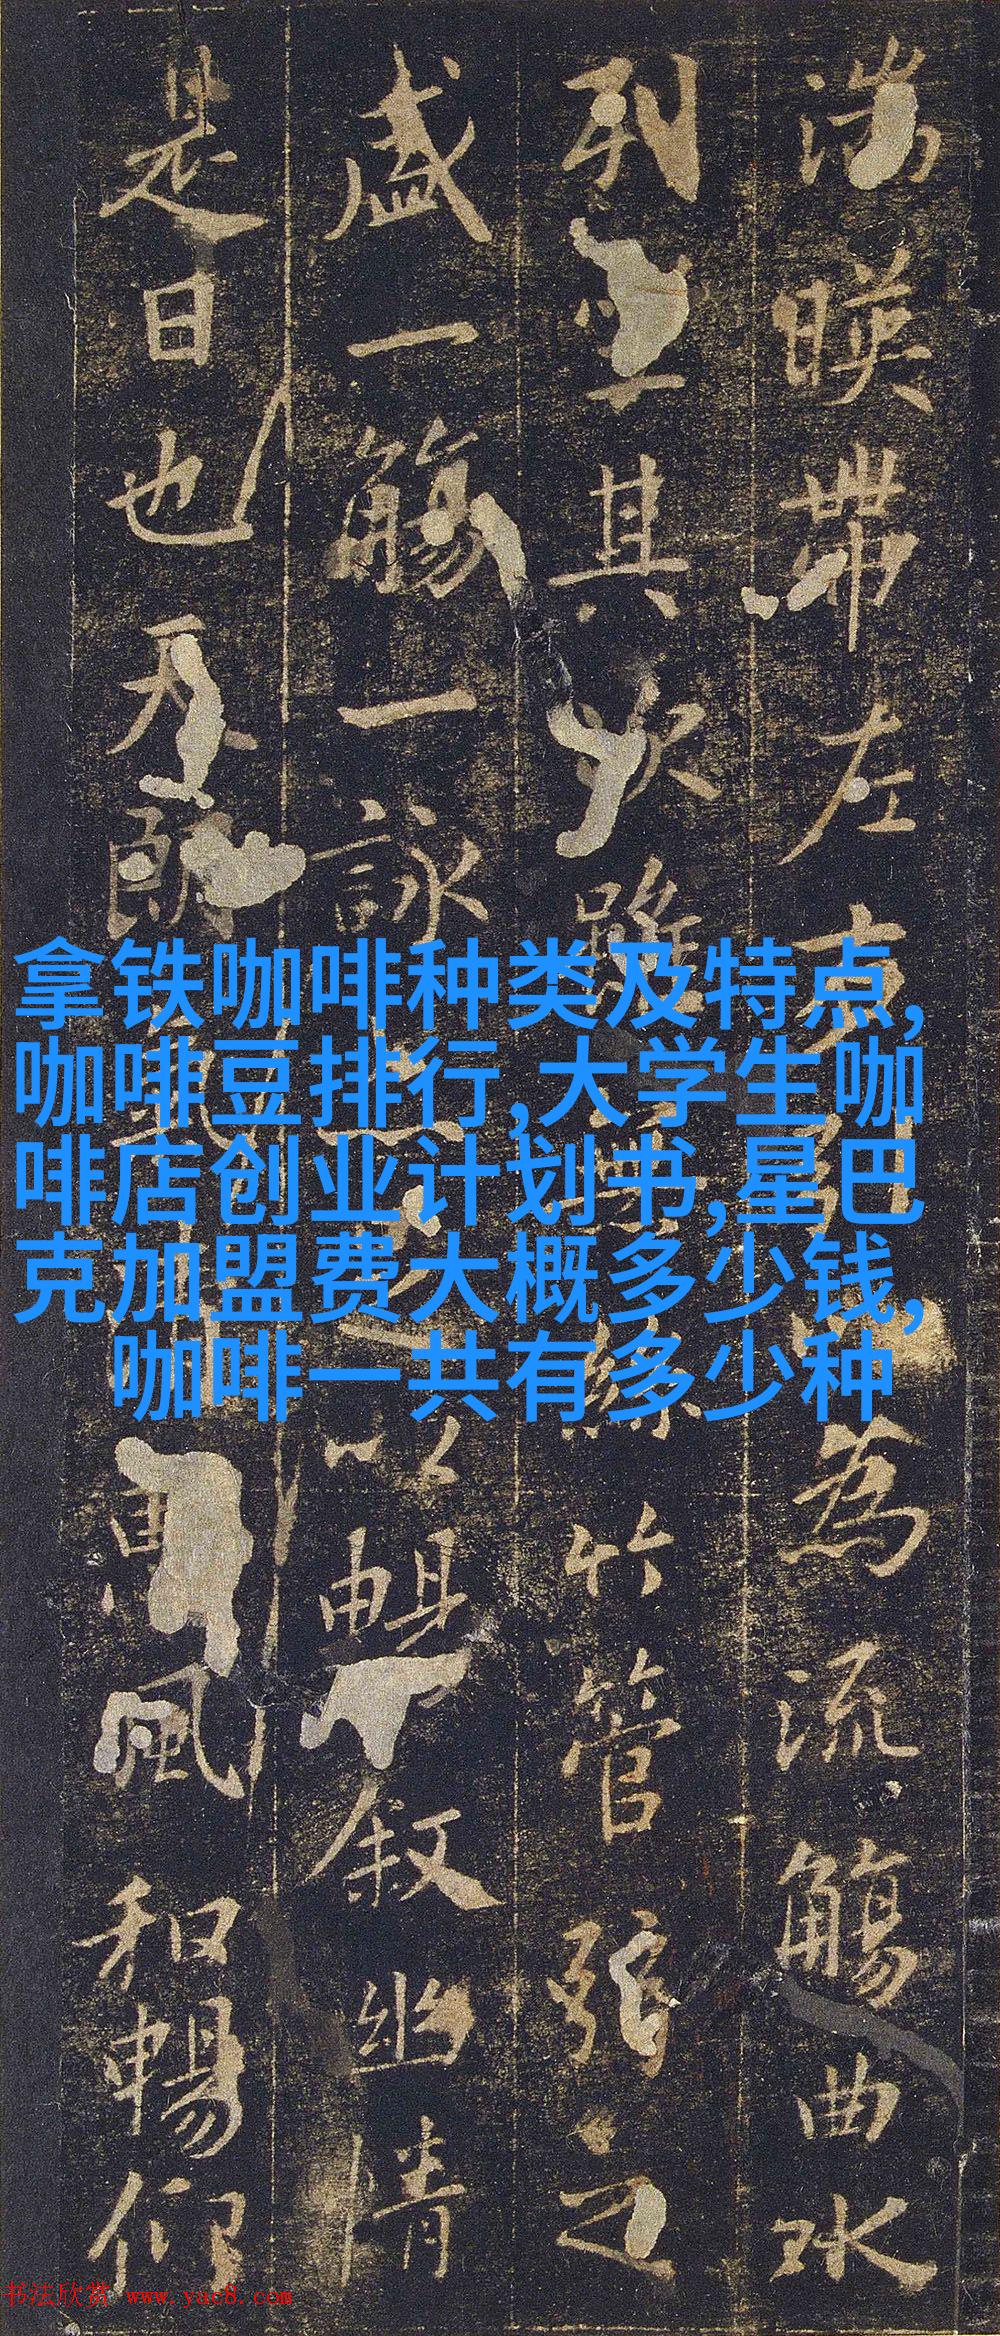 湍暎帶左右為流觴曲水
列坐其次雖無絲竹管弦之
盛一觴一詠以暢敘幽情
是日也天朗風和暢仰
拿铁咖啡种类及特点,
咖啡豆排行,大学生咖
啡店创业计划书,星巴
克加盟费大概多少钱,
咖啡一共有多少种
书法欣赏 www.yac8.com